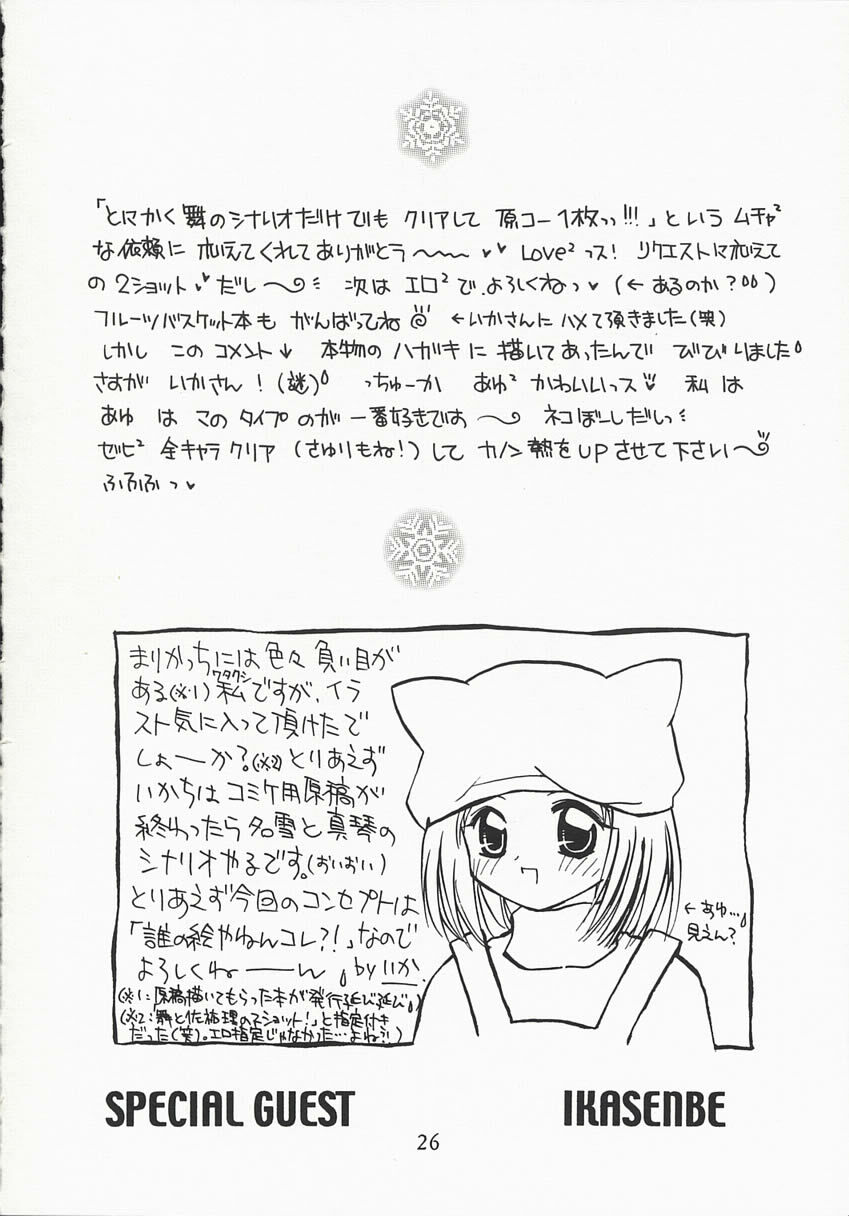 「とにかく舞のシナリオだけでも クリアして 原コー1枚っっ!!!」という ムチャ²
な依頼に 応えてくれてありがとう〜〜〜 ♥♥ Love²っス! リクエストに応えて
の 2ショット♥だし〜 次は エロ²で、よろしくねっ♥ (←あるのか?)
フルーツバスケット本も がんばってね ←いかさんにハメて頂きました(笑)
しかし このコメント↓ 本物のハガキに描いてあったんで びびりました
さすが いかさん!(謎) っちゅーか あゆ² かわいいっス♥ 私は
あゆ は このタイプのが 一番好きです〜 ネコぼーしだしっ
ゼヒ² 全キャラクリア (さゆりもね!) して カノン熱をUPさせて下さい〜
ふふふっ♥
まりかっちには色々負い目が
ある(※1)私ですが、イラ
ワタクシ
スト気に入って頂けたで
しょーか?(※2)とりあえず
いかちはコミケ用原稿が
終わったら名雪と真琴の
シナリオやるです。(おいおい)
とりあえず今回のコンセプトは
「誰の絵やねんコレ?!」なので
よろしくねーーん by いか.
(※1:原稿描いてもらった本が発行延び延び)
(※2:「舞と佐祐理の2ショット!」と指定付き
だった(笑)。エロ指定じゃなかった…よね?!)
←あゆ…。
見えん?
SPECIAL GUEST IKASENBE
26